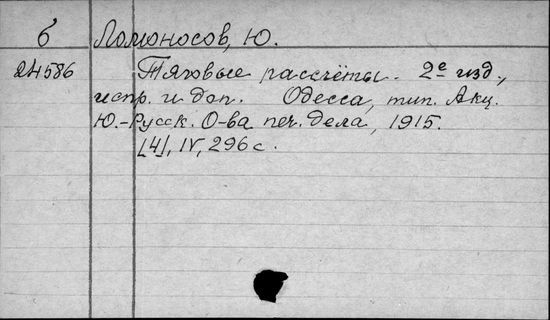 б Ломоносов, Ю.
24586 Тяговые рассчёты. 2е изд.,
испр. и доп. Одесса, тип. Акц.
Ю.-Русск. О-ва печ. дела, 1915.
[4], IV, 296 с.